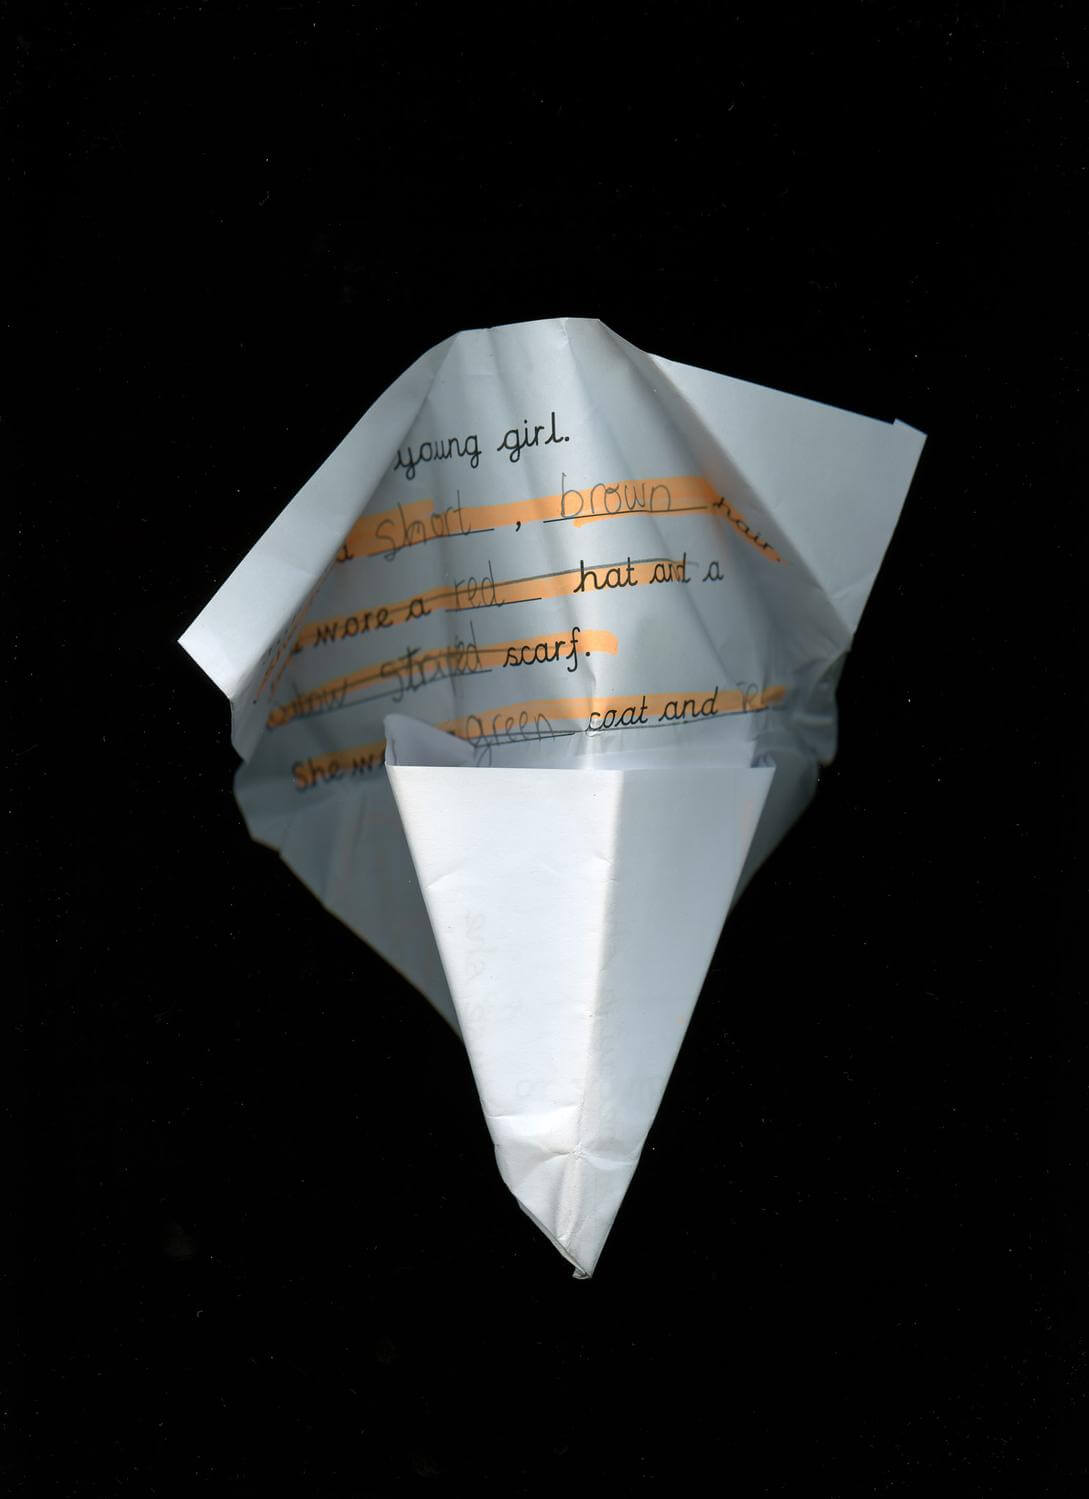 young girl.
short , brown hair
wore a red hat and a
striped scarf.
green coat and
she